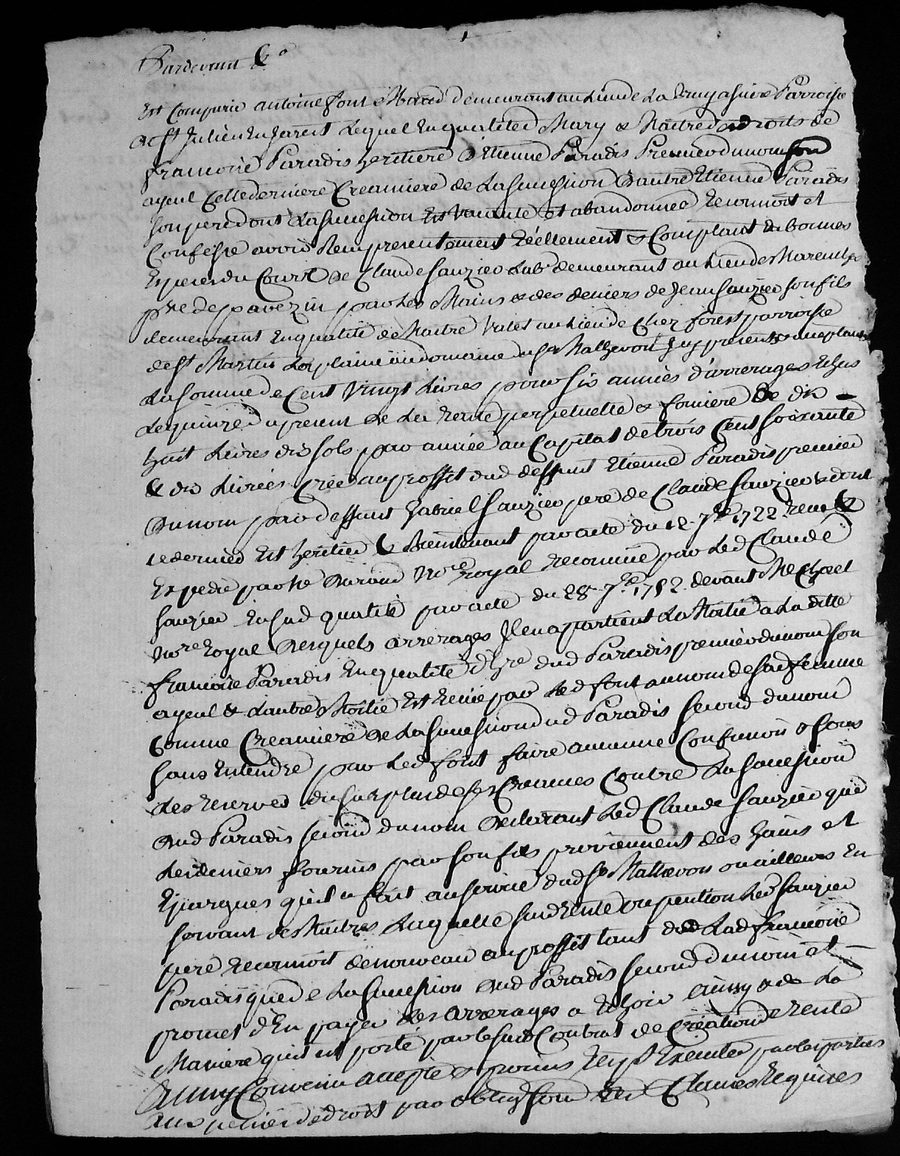 Pardevant &c
Est Comparu antoine font Marchd demeurant au Lieu de La Parroisse
de st Julien En Jarest Lequel En qualité de Mary & Maitre des droits de
francoise Paradis heritiere d'Etienne Paradis Premier du nom son
ayeul Cette derniere Creanciere de La succession d'autre Etienne Paradis
son pere dont La succession Est vacante et abandonnée Reconnoit et
Confesse avoir Reçu presentement Réellement & Comptant En bonnes
Especes du Cours de Claude sauzier Labr demeurant au Lieu de
psse de pavezin par Les Mains & des deniers de Jean sauzier son fils
demeurant En qualité de Maitre Valet au Lieu de Chez foret parroisse
de st Martin La plaine au domaine du sr Mathevon Icy present & acceptant
La somme de Cent Vingt Livres pour six années d'arrerages Echus
jusqu'a present de La Rente perpetuelle & fonciere de dix
huit Livres dix sols par année au Capital de trois Cent soixante
& dix Livres Créé au proffit dud deffunt Etienne Paradis premier
du nom par deffunt Gabriel sauzier pere de Claude sauzier & dont
ce dernier Est heritier & Bientenant par acte du 12 7bre 1722 Receu &
Expedié par Me Noire Royal Reconnue par Led Claude
sauzier En sud qualité par acte du 28 7bre 1752 devant Me
Noire Royal desquels arrerages Il en apartient La Moitié a La ditte
francoise Paradis En qualité d'here dud Paradis premier du nom son
ayeul & L'autre Moitié Est Reçue par Led font au nom de sad femme
Comme Creanciere de La succession dud Paradis second du nom
sans Entendre par Led font faire aucune Confusion & sous
des reserves du surplus de ses Creances Contre La succession
dud Paradis second du nom declarant Led Claude sauzier que
Les deniers fournis par son fils proviennent des Gains et
Epargnes qu'il a fait au service dud sr Mathevon ou ailleurs En
servant des Maitres Laquelle susd Rente ou pention Led sauzier
pere Reconnoit de nouveau au proffit tant de Lad francoise
Paradis que de La succession dud Paradis second du nom et
promet d'En payer Les arrerages a Echoir ainsy & de La
Maniere qu'il est porté par Le susd Contrat de Création de Rente
Ainsy Convenu accepté & promis Executer par Les parties
aux peines de droit par obligaon Clauses Requises